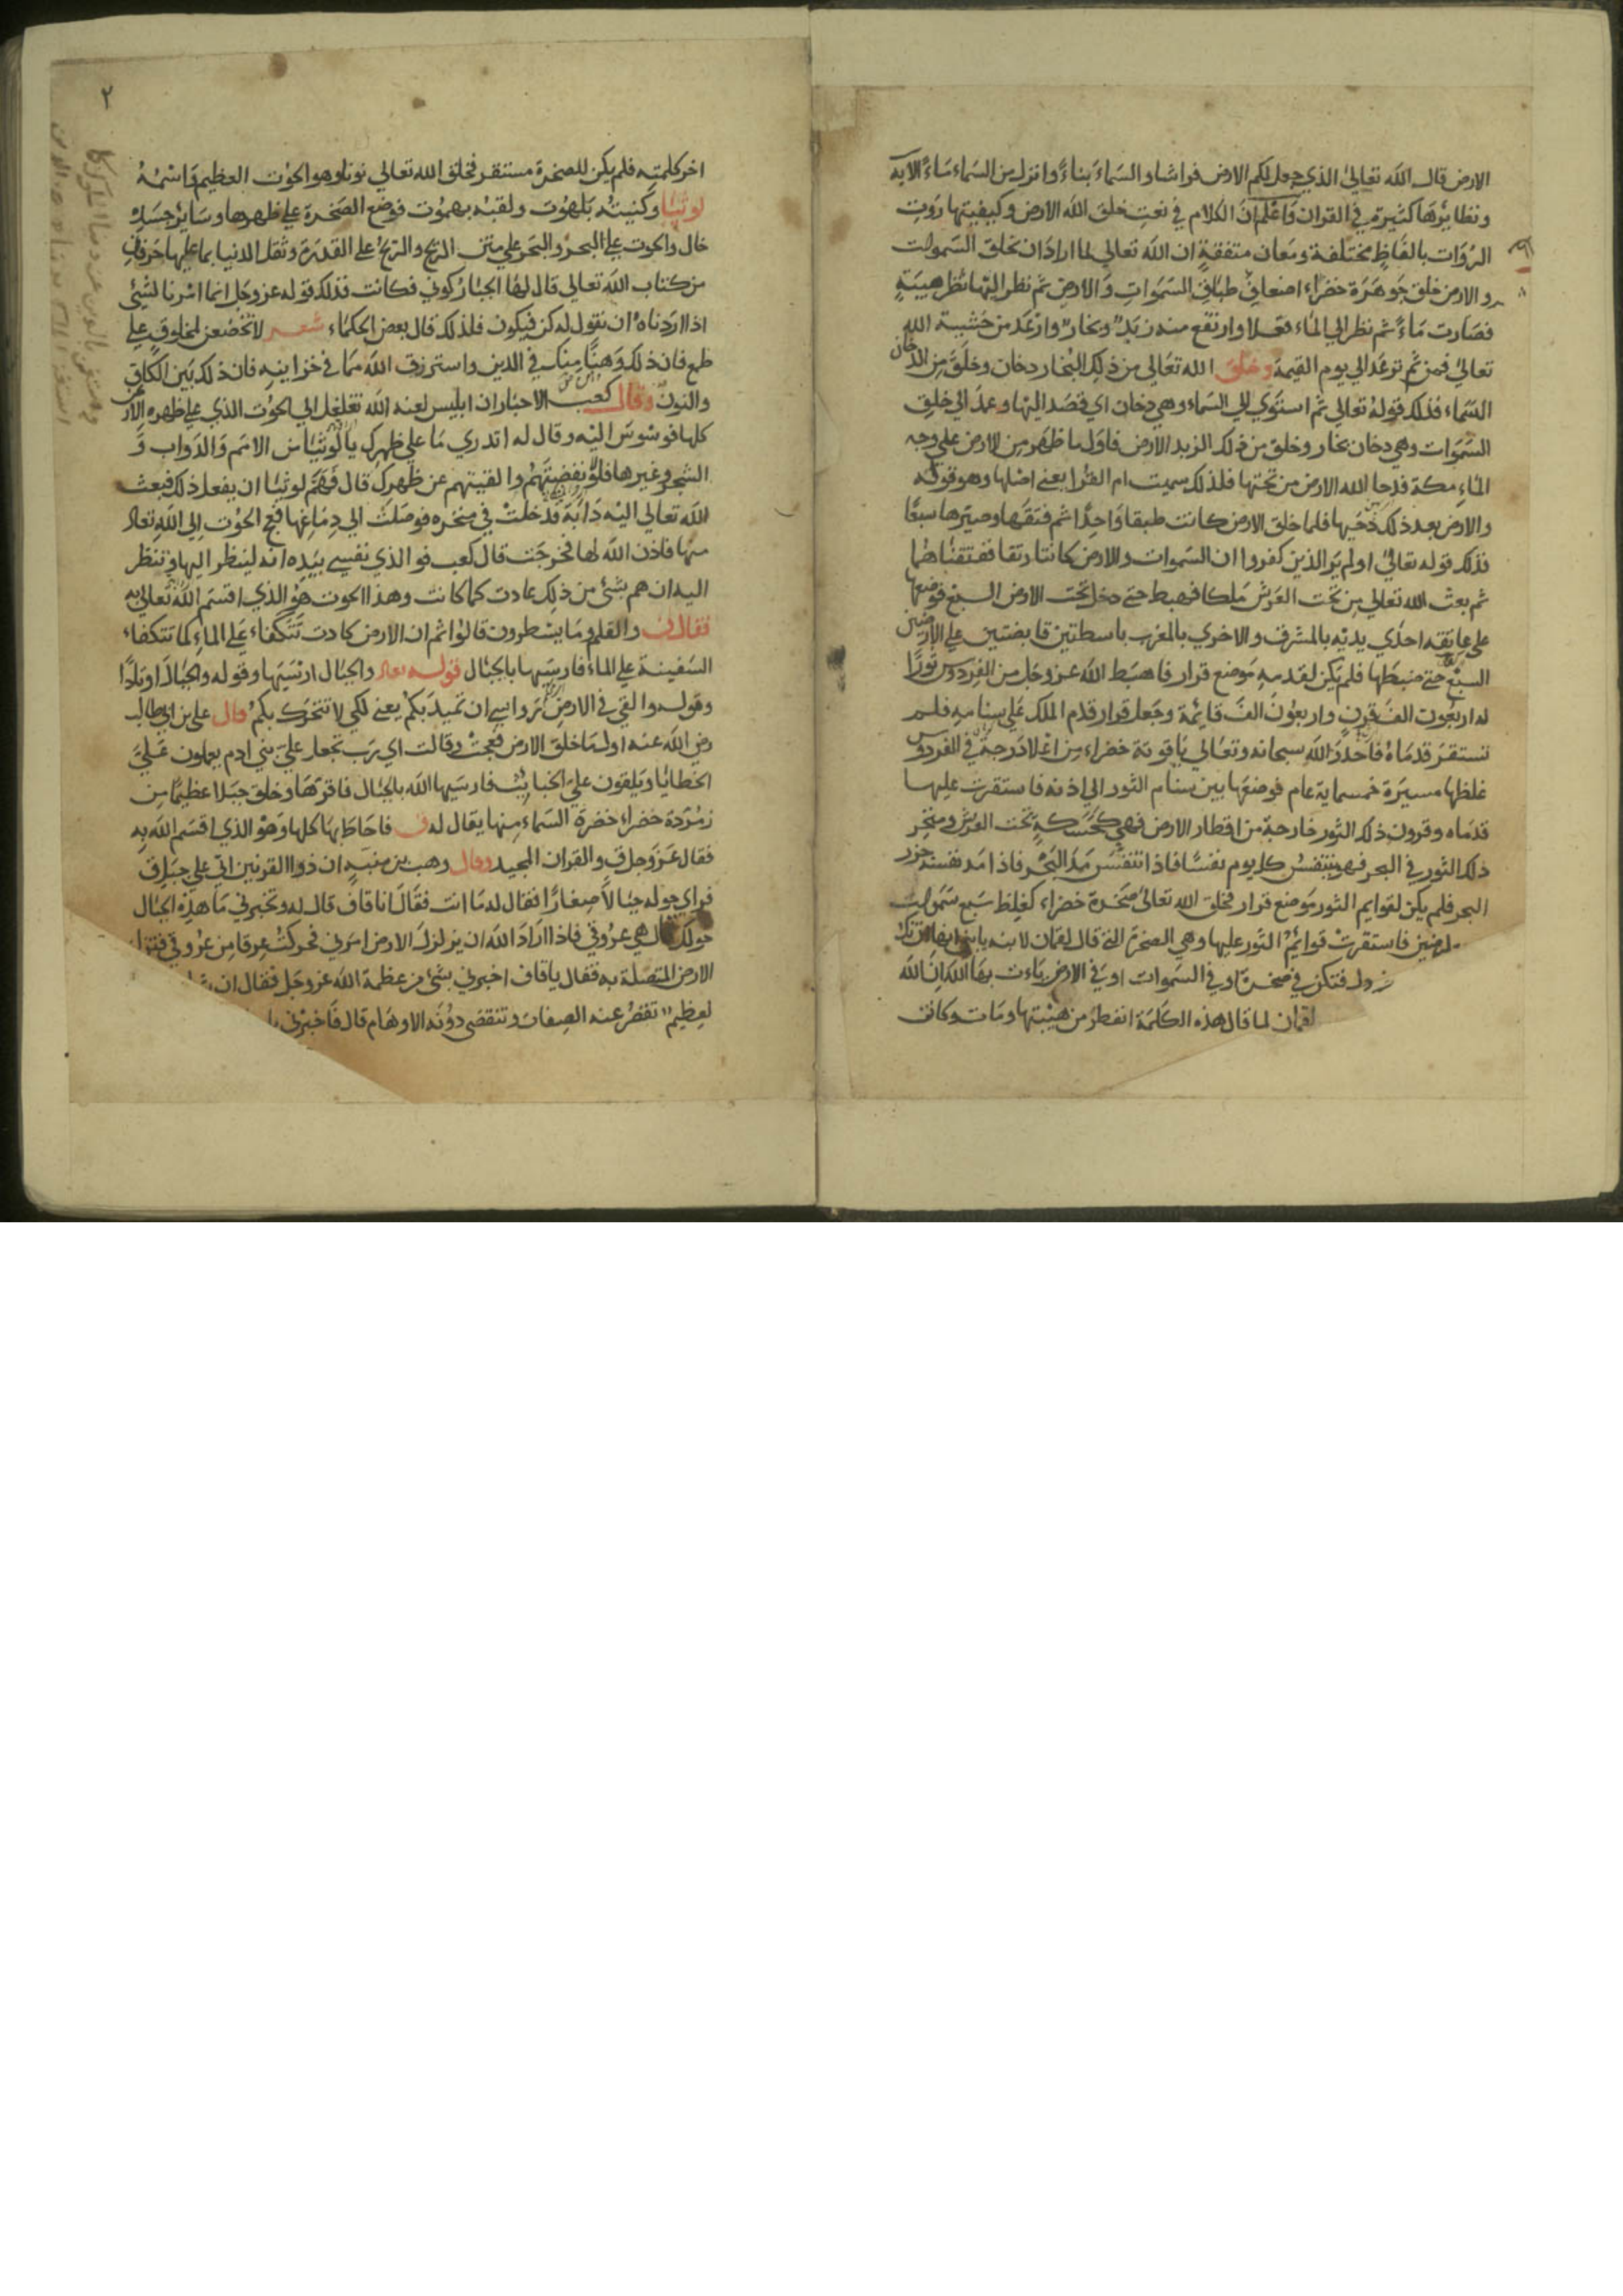 الارض قال الله تعالى الذي جعل لكم الارض فراشا والسماء بناءً وانزل من السماء ماءً الايه
ونظايرها كثيرة في القران واعلم ان الكلام في نعت خلق الله الارض وكيفيتها روت
الروات بالفاظٍ مختلفة ومعان متفقةٍ ان الله تعالى لما اراد ان يخلق السموات
والارض خلق جوهرة خضراء اضعاف طباق السموات والارض ثم نظر اليها نظر هيبةٍ
فصارت ماءً ثم نظر الي الماء فغلا وارتفع منه زبدٌ وبخارٌ وارعد من خشية الله
تعالى فمن ثم ترعد الي يوم القيمة وخلق الله تعالى من ذلك البخار دخان وخلق من الدخان
السماء فذلك قوله تعالى ثم استوي الي السماء وهي دخان اي قصد اليها وعمد الي خلق
السموات وهي دخان بخار وخلق من ذلك الزبد الارض فاول ما ظهر من الارض على وجه
الماء مكة فدحا الله الارض من تحتها فلذلك سميت ام القرا يعني اصلها وهو قوله
والارض بعد ذلك دحيها فلما خلق الارض كانت طبقا واحدا ثم فتقها وصيرها سبعًا
فذلك قوله تعالى اولم ير الذين كفروا ان السموات والارض كانتا رتقا ففتقناهما
ثم بعث الله تعالى من تحت العرش ملكا فهبط حتي دخل تحت الارض السبع فوضعها
على عاتقه احدي يديه بالمشرق والاخري بالمغرب باسطتين قابضتين علي الارضين
السبع حتي ضبطها فلم يكن لقدميه موضع قرار فاهبط الله عز وجل من الفردوس ثورًا
له اربعون الف قرن واربعون الف قايمة وجعل قرار قدم الملك علي سنامه فلم
تستقر قدماه فاحدر الله سبحانه وتعالي ياقوتة خضراء من اعلا درجة في الفردوس
غلظها مسيرة خمسماية عام فوضعها بين سنام الثور الي اذنه فاستقرت عليها
قدماه وقرون ذلك الثور خارجة من اقطار الارض فهي كحسكةٍ تحت العرش ومنخر
ذلك الثور في البحر فهو يتنفس كل يوم نفسًا فاذا تنفس مد البحر فاذا مد نفسه جزر
البحر فلم يكن لقوايم الثور موضع قرار فخلق الله تعالى صخرة خضراء كغلظ سبع سموات
فاستقرت قوايم الثور عليها وهي الصخرة التي قال لقمان لابنه يا بني انها ان تك
فتكن في صخرةٍ او في السموات او في الارض يات بها الله ان الله
لقمان لما قال هذه الكلمة انفطر من هيبتها ومات وكانت
٢
اخر كلمته فلم يكن للصخرة مستقر فخلق الله تعالى نونا وهو الحوت العظيم واسمه
لوتيا وكنيته بلهوت ولقبه بهموت فوضع الصخرة علي ظهرها وساير جسده
خال والحوت على البحر والبحر على متن الريح والريح على القدرة وثقل الدنيا بما عليها حرفان
من كتاب الله تعالى قال لها الجبار كوني فكانت فذلك قوله عز وجل انما امرنا لشئ
اذا اردناه ان نقول له كن فيكون فلذلك قال بعض الحكماء شعر لا تخضعن لمخلوق على
طمع فان ذلك وهنًا منك في الدين واسترزق الله مما في خزاينه فان ذلك بين الكاف
والنون وقال كعب الاحبار ان ابليس لعنه الله تغلغل الي الحوت الذي علي ظهره الارض
كلها فوسوس اليه وقال له اتدري ما علي ظهرك يا لوتيا من الامم والدواب و
الشجر وغيرها فلو نفضتهم والقيتهم عن ظهرك قال فهم لوتيا ان يفعل ذلك فبعث
الله تعالى اليه دابة فدخلت في منخره فوصلت الي دماغها فعج الحوت الي الله تعالى
منها فاذن الله لها فخرجت قال كعب فو الذي نفسي بيده انه لينظر اليها وتنظر
اليه ان هم بشئ من ذلك عادت كما كانت وهذا الحوت هو الذي اقسم الله تعالى به
فقال ن والقلم وما يسطرون قالوا ثم ان الارض كادت تتكفاء على الماء كما تتكفاء
السفينة على الماء فارسيها بالجبال قوله تعالى والجبال ارسيها وقوله والجبال اوتادًا
وقوله والقي في الارض رواسي ان تميد بكم يعني لكي لا تتحرك بكم قال علي بن ابي طالب
رضي الله عنه اول ما خلق الارض فعجت وقالت اي رب تجعل علي بني ادم يعملون علي
الخطايا ويلقون علي الخبايث فارسيها الله بالجبال فاقرها وخلق جبلا عظيمًا من
زمردة خضراء خضرة السماء منها يقال له ق فاحاط بها كلها وهو الذي اقسم الله به
فقال عز وجل ق والقران المجيد وقال وهب بن منبه ان ذوا القرنين اتي علي جبل ق
فراي حوله جبالاً صغارًا فقال له ما انت فقال انا قاف قال له وتخبرني ما هذه الجبال
حولك قال هي عروقي فاذا اراد الله ان يزلزل الارض امرني فحركت عرقا من عروقي فتزلزل
الارض المتصلة به فقال يا قاف اخبرني بشئ من عظمة الله عز وجل فقال ان
لعظيم تقصر عنه الصفات وتنقضي دونه الاوهام قال فاخبرني